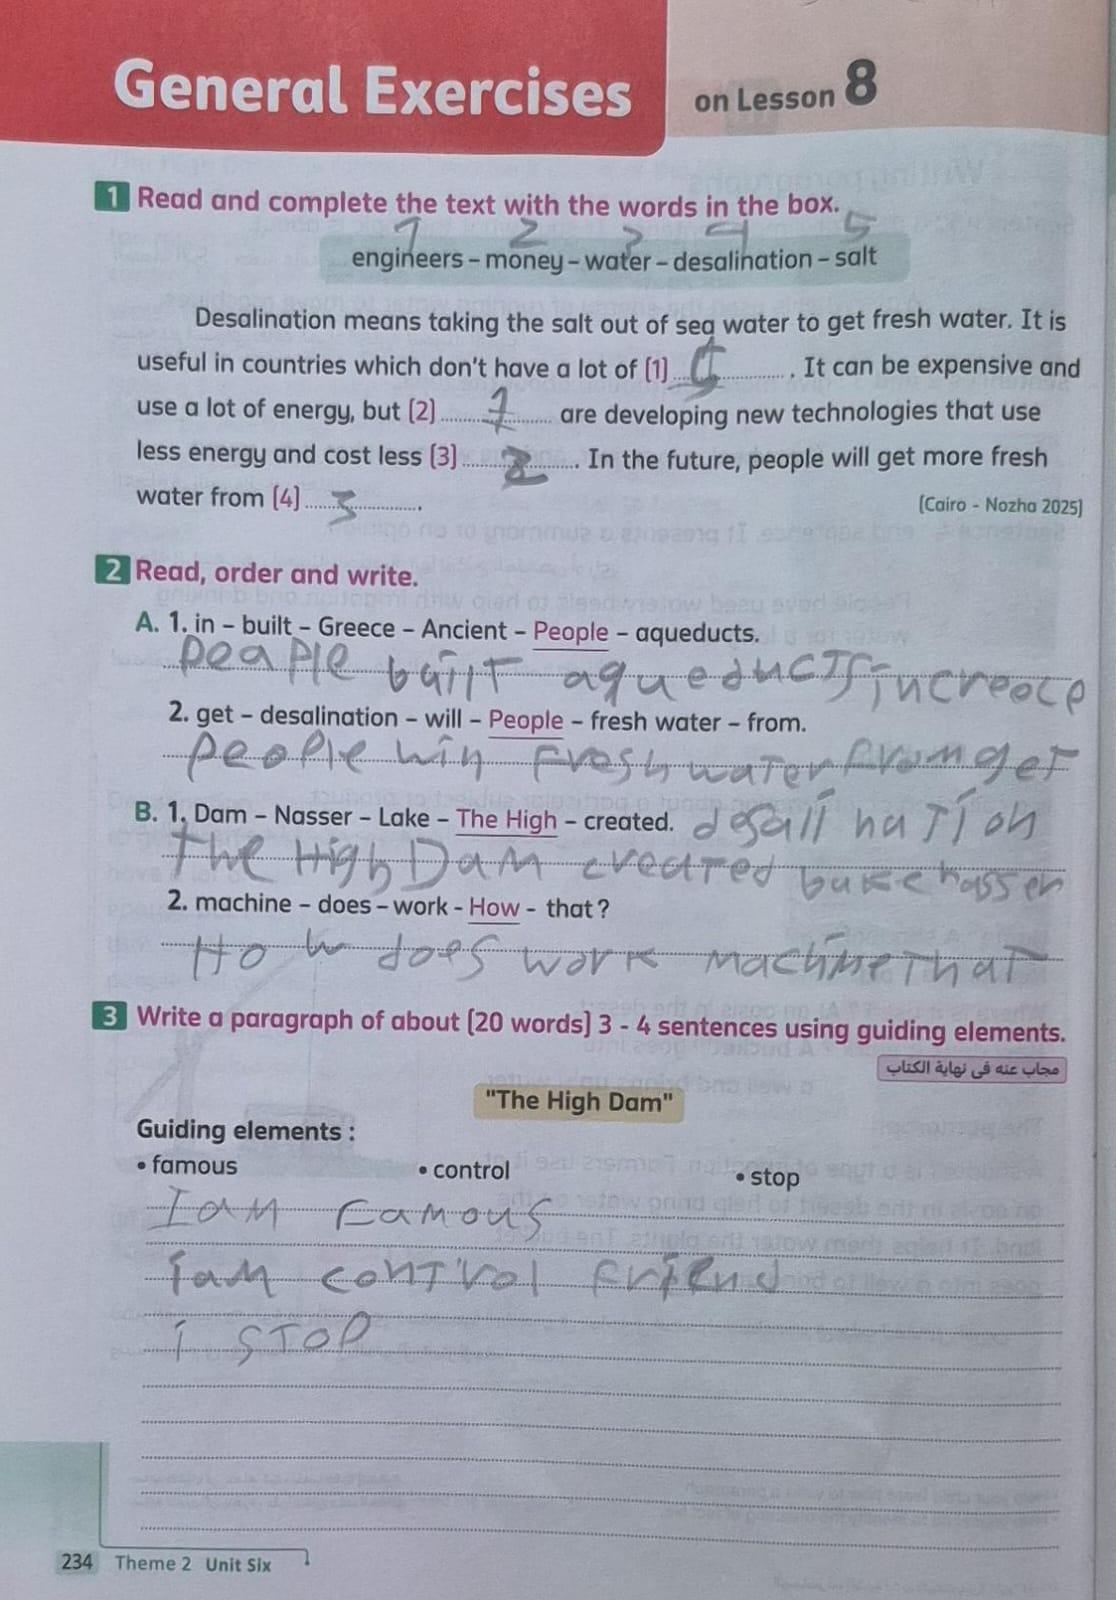 General Exercises on Lesson 8
1 Read and complete the text with the words in the box.
1 2 3 4 5
engineers – money – water – desalination – salt
Desalination means taking the salt out of sea water to get fresh water. It is
useful in countries which don't have a lot of (1) .............. . It can be expensive and
use a lot of energy, but (2) ......1...... are developing new technologies that use
less energy and cost less (3) ......2...... . In the future, people will get more fresh
water from (4) ......3...... .
(Cairo - Nozha 2025)
2 Read, order and write.
A. 1. in – built – Greece – Ancient – People – aqueducts.
peaple built aqueducts increace
2. get – desalination – will – People – fresh water – from.
people win freshwater from get
desalination
B. 1. Dam – Nasser – Lake – The High – created.
The High Dam created bake hasser
2. machine – does – work - How - that ?
How does work machine that
3 Write a paragraph of about (20 words) 3 - 4 sentences using guiding elements.
مجاب عنه في نهاية الكتاب
"The High Dam"
Guiding elements :
• famous • control • stop
I am Famous
i am control friend
i stop
234 Theme 2 Unit Six